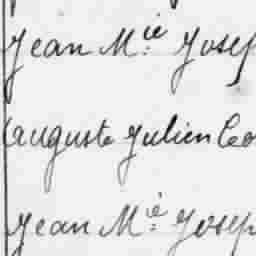 Jean M.ie Josep
auguste Julien Leo
Jean M.ie Josep